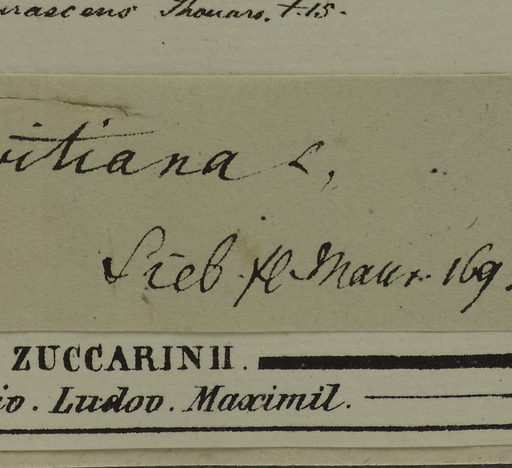 urascens Thouars. t. 15.
itiana L,
Sieb. fl Maur. 169.
ZUCCARINII.
io. Ludov. Maximil.